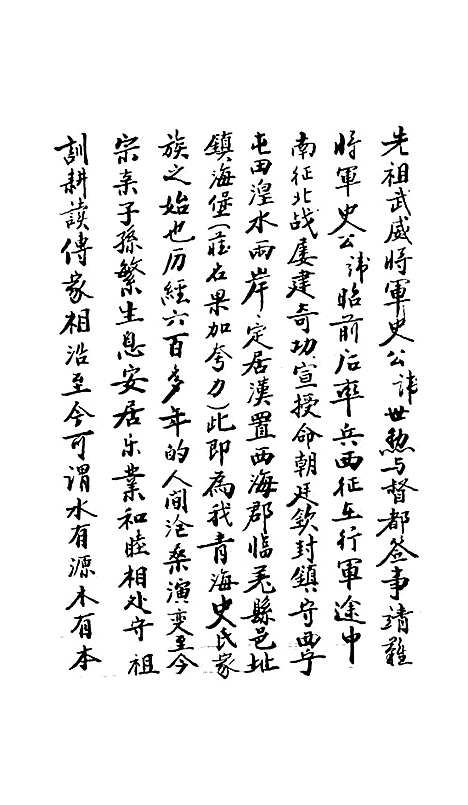 先祖武威將軍史公諱世勲与督都簽事靖難
將軍史公諱昭前后率兵西征在行軍途中
南征北战屡建奇功宣授命朝廷欽封鎮守西宁
屯田湟水两岸定居漢置西海郡臨羌縣邑址
鎮海堡(在果加夸刀)此即為我青海史氏家
族之始也历經六百多年的人间沧桑演变至今
宗亲子孫繁生息安居乐業和睦相处守祖
訓耕讀傳家相沿至今可謂水有源木有本